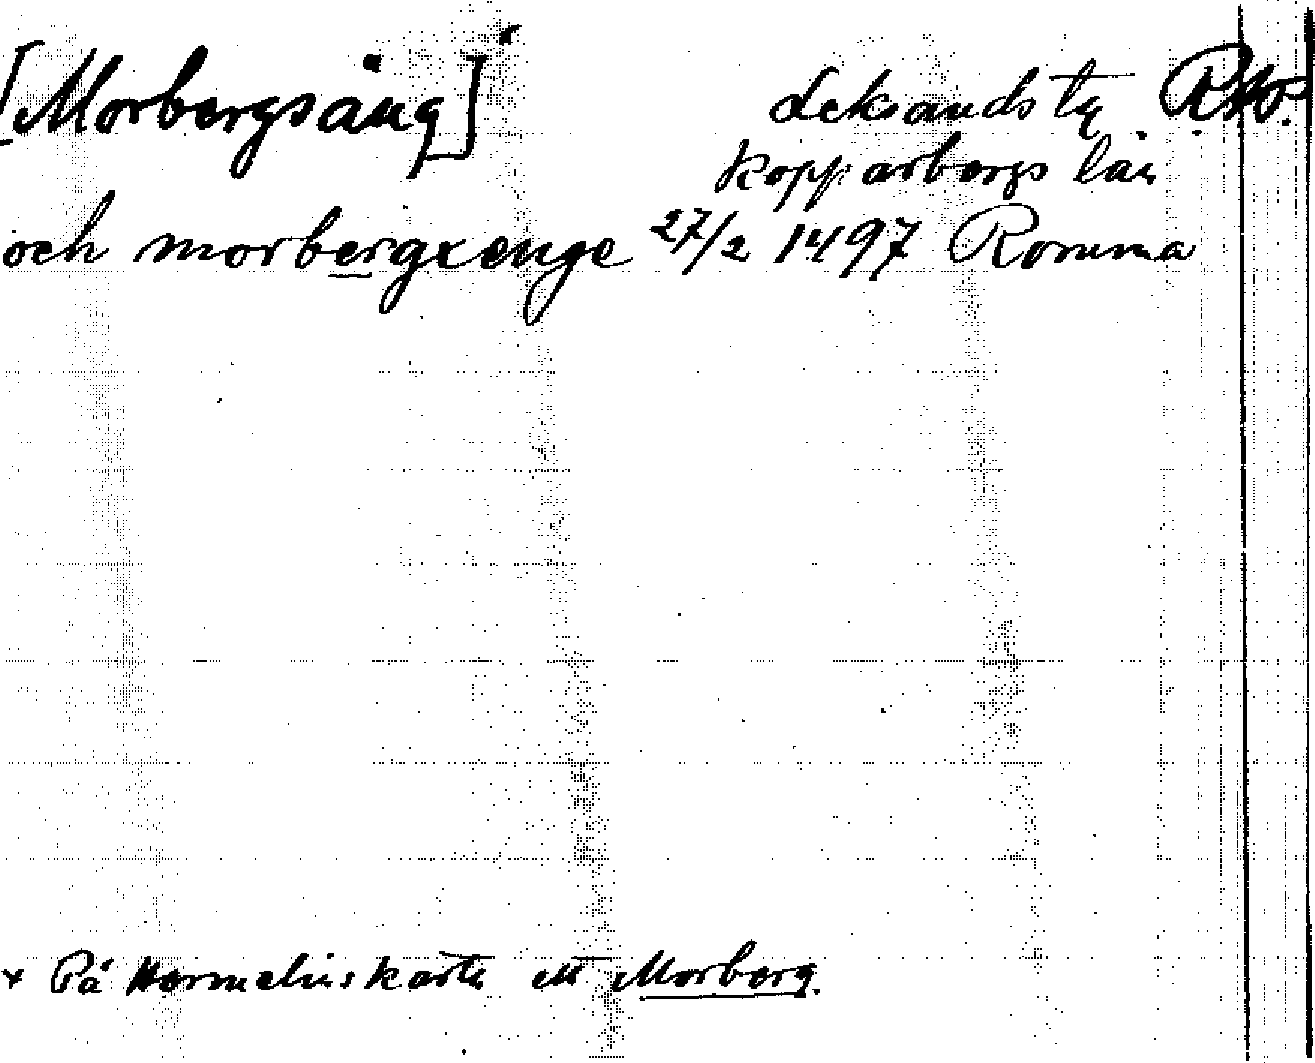 [Morbergsäng]
Leksands tg
Kopparbergs län
och morbergxenge 27/2 1497 Romma
x På Hermelins karta ett Morberg.